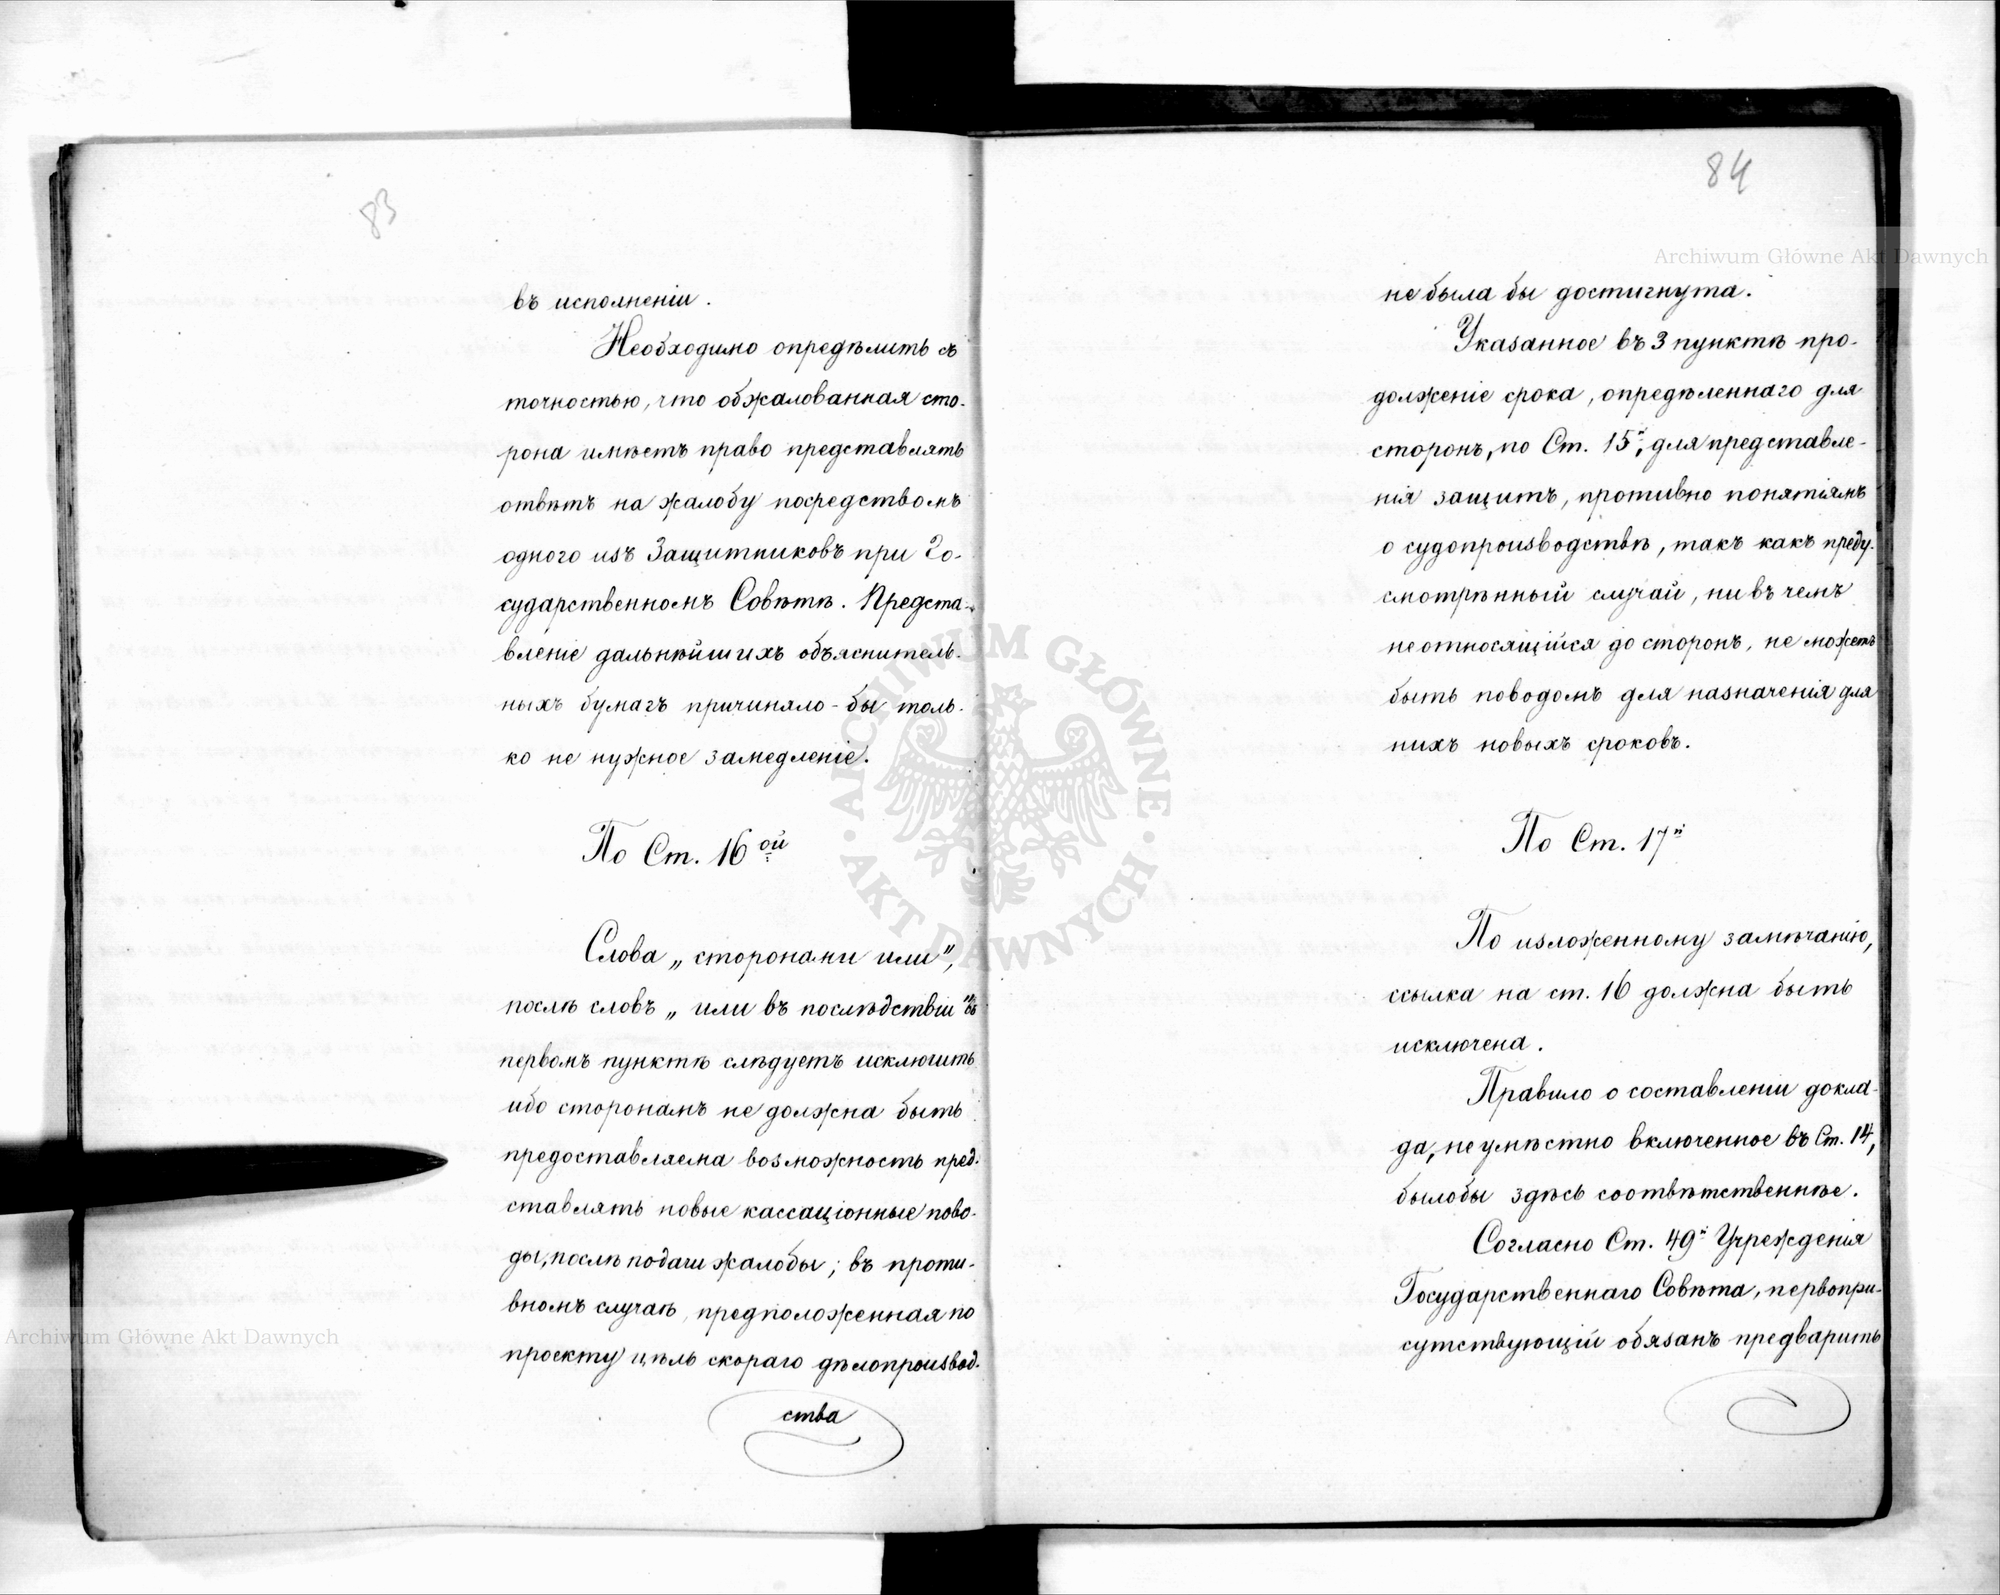 83
въ исполненіи.
Необходимо опредѣлить съ
точностью, что обжалованная сто-
рона имѣетъ право представлять
отвѣтъ на жалобу посредствомъ
одного изъ Защитниковъ при Го-
сударственномъ Совѣтѣ. Предста-
вленіе дальнѣйшихъ объяснитель-
ныхъ бумагъ причиняло-бы толь-
ко не нужное замедленіе.
По Ст. 16ой
Слова „сторонами или",
послѣ словъ „или въ послѣдствіи" въ
первомъ пунктѣ слѣдуетъ исключить
ибо сторонамъ не должна быть
предоставляема возможность пред-
ставлять новые кассаціонные пово-
ды, послѣ подачи жалобы; въ проти-
вномъ случаѣ, предположенная по
проекту цѣль скораго дѣлопроизвод-
ства
84
не была бы достигнута.
Указанное въ 3 пунктѣ про-
долженіе срока, опредѣленнаго для
сторонъ, по Ст. 15й, для представле-
нія защитъ, противно понятіямъ
о судопроизводствѣ, такъ какъ преду-
смотрѣнный случай, ни въ чемъ
не относящійся до сторонъ, не можетъ
быть поводомъ для назначенія для
нихъ новыхъ сроковъ.
По Ст. 17й
По изложенному замѣчанію,
ссылка на ст. 16 должна быть
исключена.
Правило о составленіи докла-
да, неумѣстно включенное въ Ст. 14,
былобы здѣсь соотвѣтственнѣе.
Согласно Ст. 49й Учрежденія
Государственнаго Совѣта, первопри-
сутствующій обязанъ предварить
Archiwum Główne Akt Dawnych
Archiwum Główne Akt Dawnych
ARCHIWUM GŁÓWNE
AKT DAWNYCH